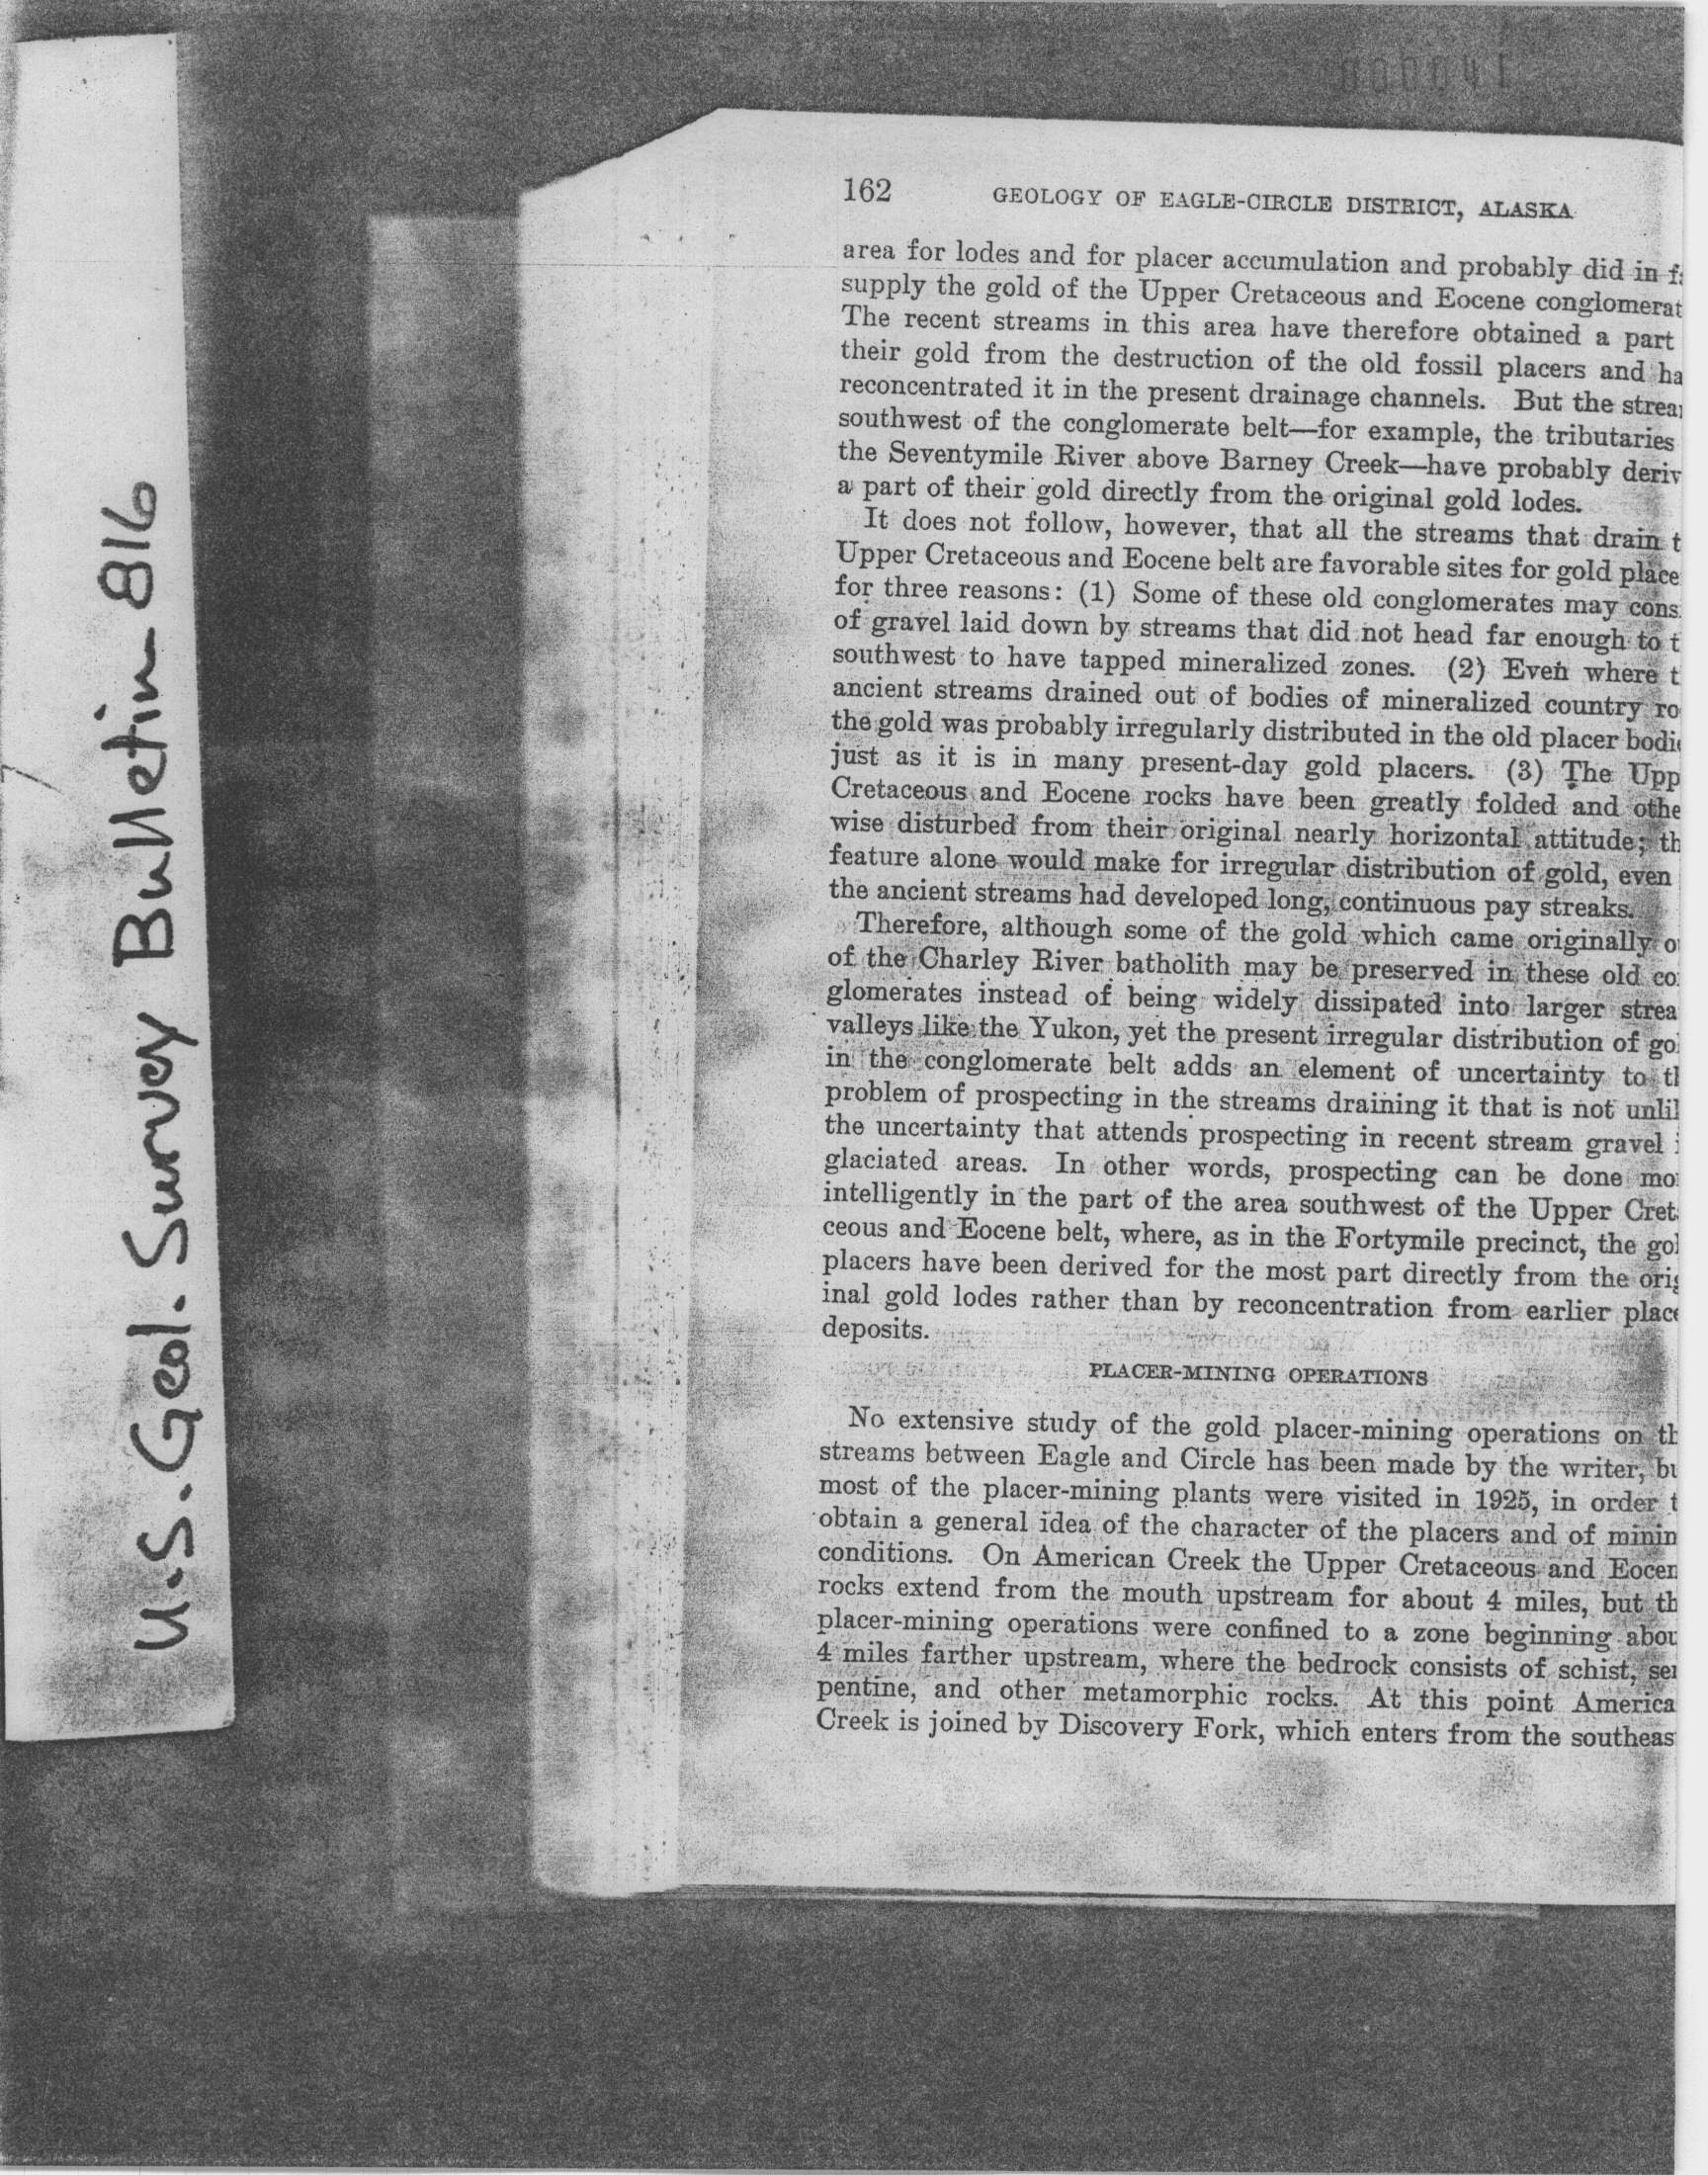 162 GEOLOGY OF EAGLE-CIRCLE DISTRICT, ALASKA
area for lodes and for placer accumulation and probably did in
supply the gold of the Upper Cretaceous and Eocene conglomerat
The recent streams in this area have therefore obtained a part
their gold from the destruction of the old fossil placers and ha
reconcentrated it in the present drainage channels. But the strea
southwest of the conglomerate belt—for example, the tributaries
the Seventymile River above Barney Creek—have probably deriv
a part of their gold directly from the original gold lodes.
It does not follow, however, that all the streams that drain t
Upper Cretaceous and Eocene belt are favorable sites for gold place
for three reasons: (1) Some of these old conglomerates may cons
of gravel laid down by streams that did not head far enough to t
southwest to have tapped mineralized zones. (2) Even where t
ancient streams drained out of bodies of mineralized country ro
the gold was probably irregularly distributed in the old placer bodi
just as it is in many present-day gold placers. (3) The Upp
Cretaceous and Eocene rocks have been greatly folded and othe
wise disturbed from their original nearly horizontal attitude; th
feature alone would make for irregular distribution of gold, even
the ancient streams had developed long, continuous pay streaks.
Therefore, although some of the gold which came originally o
of the Charley River batholith may be preserved in these old co
glomerates instead of being widely dissipated into larger strea
valleys like the Yukon, yet the present irregular distribution of go
in the conglomerate belt adds an element of uncertainty to t
problem of prospecting in the streams draining it that is not unli
the uncertainty that attends prospecting in recent stream gravel
glaciated areas. In other words, prospecting can be done mo
intelligently in the part of the area southwest of the Upper Cret
ceous and Eocene belt, where, as in the Fortymile precinct, the gol
placers have been derived for the most part directly from the orig
inal gold lodes rather than by reconcentration from earlier place
deposits.
PLACER-MINING OPERATIONS
No extensive study of the gold placer-mining operations on th
streams between Eagle and Circle has been made by the writer, bu
most of the placer-mining plants were visited in 1925, in order t
obtain a general idea of the character of the placers and of minin
conditions. On American Creek the Upper Cretaceous and Eocen
rocks extend from the mouth upstream for about 4 miles, but th
placer-mining operations were confined to a zone beginning abou
4 miles farther upstream, where the bedrock consists of schist, ser
pentine, and other metamorphic rocks. At this point America
Creek is joined by Discovery Fork, which enters from the southeas
U.S. Geol. Survey Bulletin 816